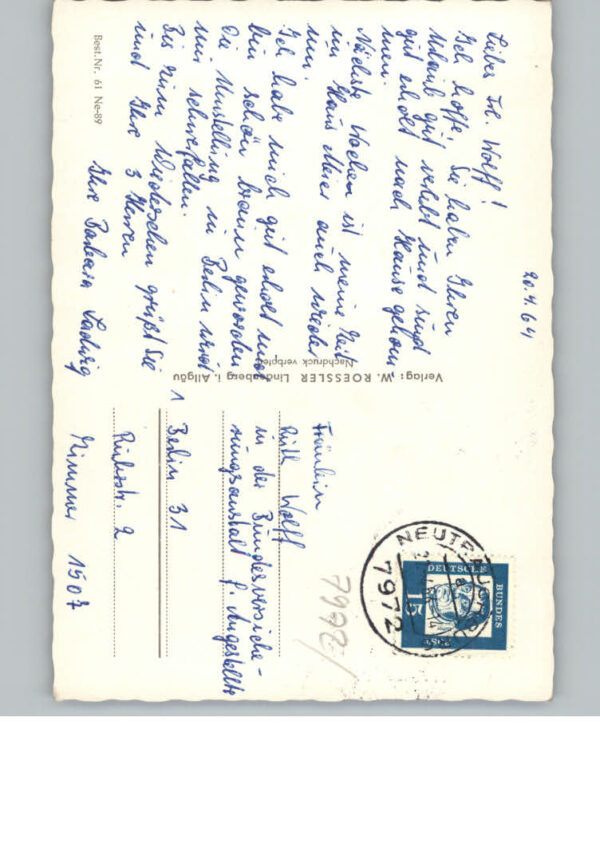 20.4.64
Liebes Frl. Wolff!
Ich hoffe, Sie haben Ihren
Urlaub gut verlebt und sind
gut erholt nach Hause gekom-
men.
Nächste Woche ist meine Zeit
im Haus Meier auch wieder
um.
Ich habe mich gut erholt und
bin schön braun geworden.
Die Umstellung in Berlin wird
mir schwerfallen.
Bis zum Wiedersehen grüßt Sie
und Ihre 3 Herren
Ihre Barbara Ludwig
Best.Nr. 61 Ne-89
Verlag: W. ROESSLER Lindenberg i. Allgäu
Nachdruck verboten
Fräulein
Ruth Wolff
in der Bundesversiche-
rungsanstalt f. Angestellte
1 Berlin 31
Ruhrstr. 2
Zimmer 1507
7992/
NEUTRAUCHBURG
7972
DEUTSCHE
BUNDES
POST
15